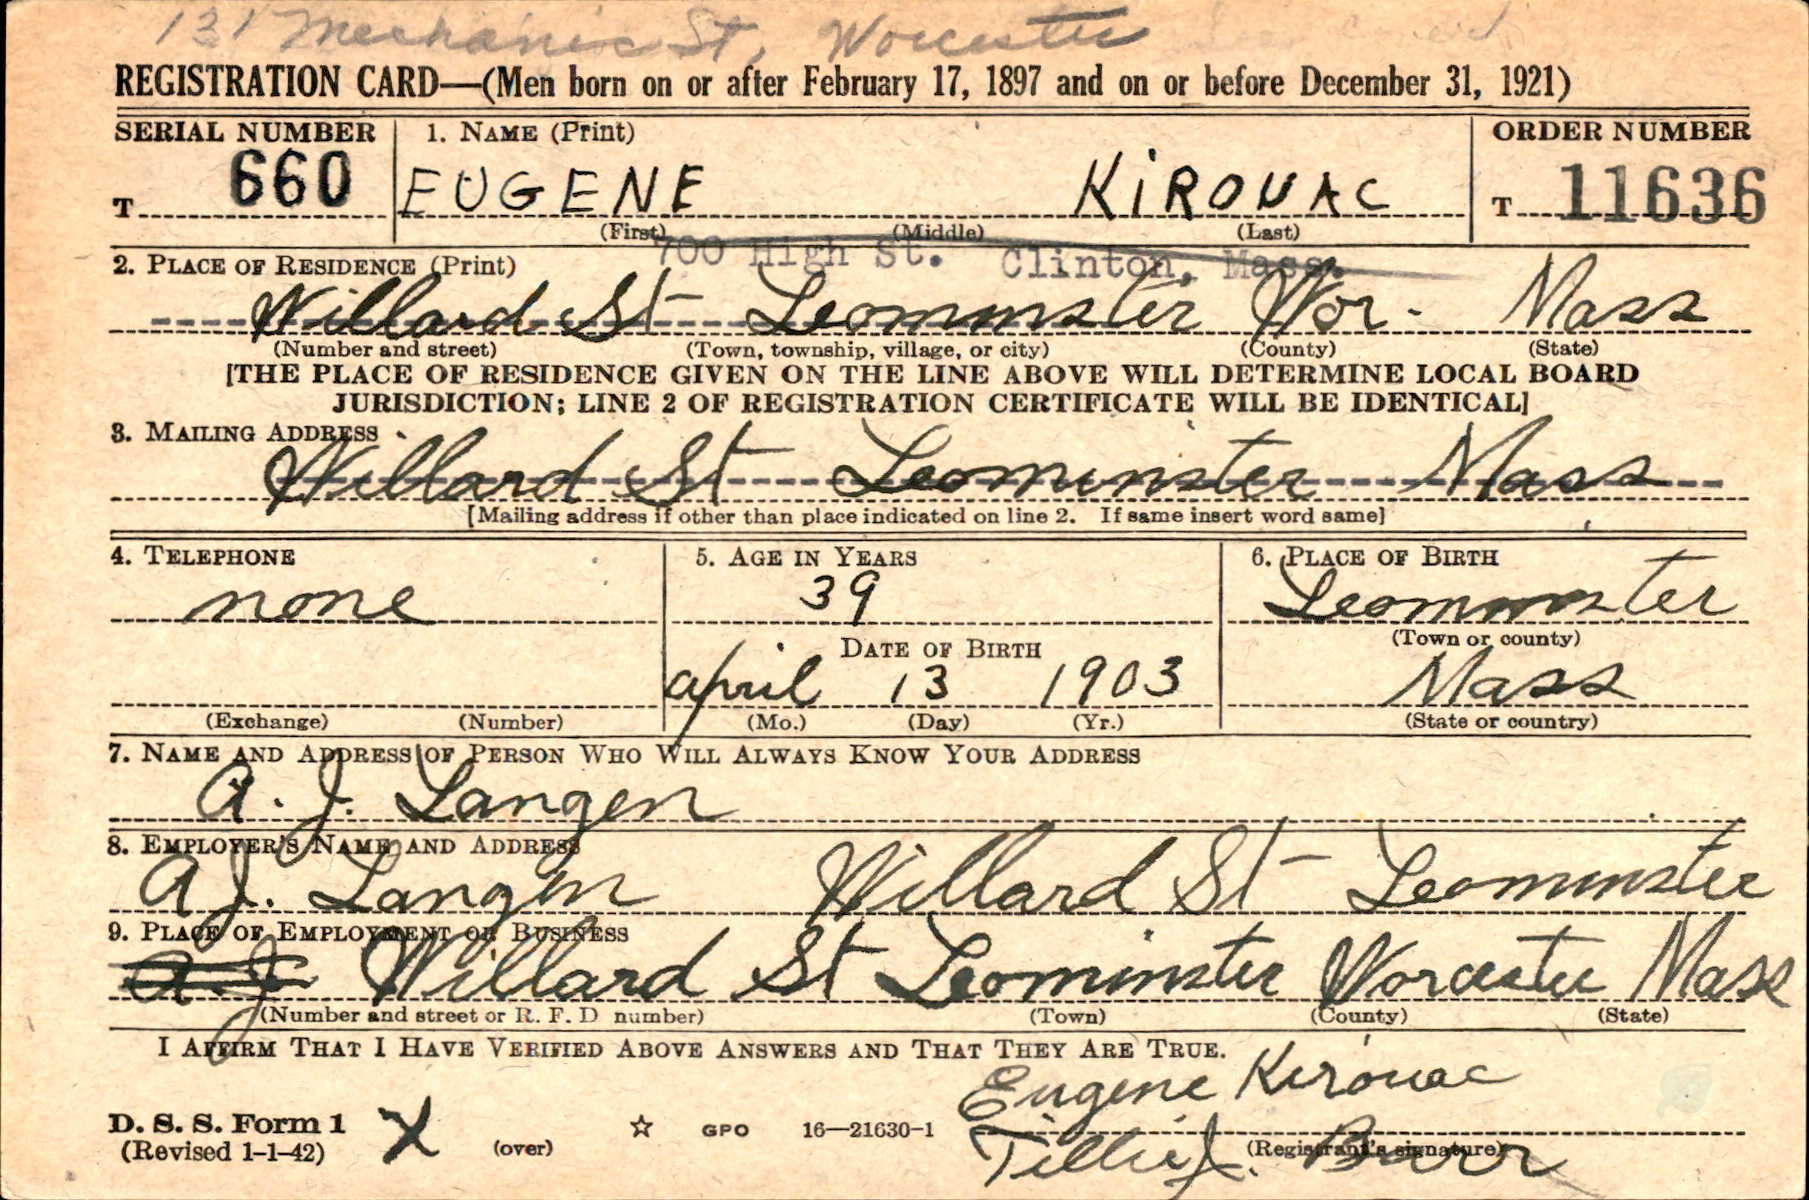 131 Mechanic St, Worcester
REGISTRATION CARD—(Men born on or after February 17, 1897 and on or before December 31, 1921)
SERIAL NUMBER 1. NAME (Print) ORDER NUMBER
T 660 EUGENE KiROUAC T 11636
(First) (Middle) (Last)
700 High St. Clinton, Mass.
2. PLACE OF RESIDENCE (Print)
Willard St Leominster Wor. Mass
(Number and street) (Town, township, village, or city) (County) (State)
[THE PLACE OF RESIDENCE GIVEN ON THE LINE ABOVE WILL DETERMINE LOCAL BOARD
JURISDICTION; LINE 2 OF REGISTRATION CERTIFICATE WILL BE IDENTICAL]
3. MAILING ADDRESS
Willard St Leominster Mass
[Mailing address if other than place indicated on line 2. If same insert word same]
4. TELEPHONE 5. AGE IN YEARS 6. PLACE OF BIRTH
none 39 Leominster
DATE OF BIRTH (Town or county)
april 13 1903 Mass
(Exchange) (Number) (Mo.) (Day) (Yr.) (State or country)
7. NAME AND ADDRESS OF PERSON WHO WILL ALWAYS KNOW YOUR ADDRESS
A. J. Langen
8. EMPLOYER'S NAME AND ADDRESS
A J. Langen Willard St Leominster
9. PLACE OF EMPLOYMENT OR BUSINESS
A. J. Willard St Leominster Worcester Mass
(Number and street or R. F. D number) (Town) (County) (State)
I AFFIRM THAT I HAVE VERIFIED ABOVE ANSWERS AND THAT THEY ARE TRUE.
Eugene Kirouac
D. S. S. Form 1 X ☆ GPO 16—21630-1
(Revised 1-1-42) (over) (Registrant's signature)
Tillie J. Barr